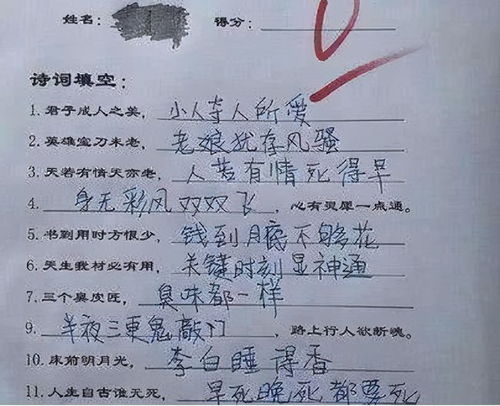 姓名： 得分： 0
诗词填空：
1. 君子成人之美，小人夺人所爱
2. 英雄宝刀未老，老娘犹存风骚
3. 天若有情天亦老，人若有情死得早
4. 身无彩凤双双飞，心有灵犀一点通。
5. 书到用时方恨少，钱到月底不够花
6. 天生我材必有用，关键时刻显神通
7. 三个臭皮匠，臭味都一样
9. 半夜三更鬼敲门，路上行人欲断魂。
10. 床前明月光，李白睡得香
11. 人生自古谁无死，早死晚死都要死